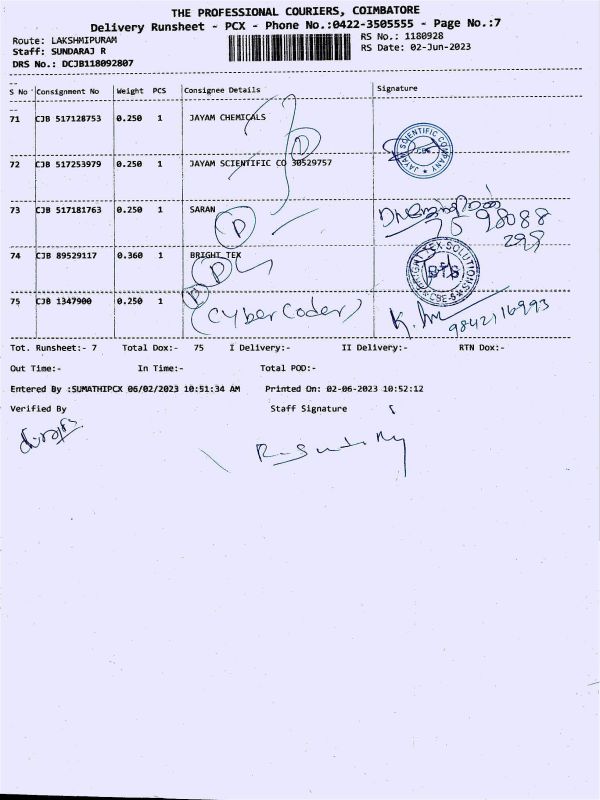 THE PROFESSIONAL COURIERS, COIMBATORE
Delivery Runsheet - PCX - Phone No.:0422-3505555 - Page No.:7
Route: LAKSHMIPURAM RS No.: 1180928
Staff: SUNDARAJ R RS Date: 02-Jun-2023
DRS No.: DCJB118092807
S No Consignment No Weight PCS Consignee Details Signature
71 CJB 517128753 0.250 1 JAYAM CHEMICALS
D
JAYAM SCIENTIFIC COMPANY
72 CJB 517253979 0.250 1 JAYAM SCIENTIFIC CO 30529757
73 CJB 517181763 0.250 1 SARAN
D
98088
298
74 CJB 89529117 0.360 1 BRIGHT TEX
D
BRIGHT TEX SOLUTIONS
BTS
75 CJB 1347900 0.250 1
D
(Cyber Coder)
9842116993
Tot. Runsheet:- 7 Total Dox:- 75 I Delivery:- II Delivery:- RTN Dox:-
Out Time:- In Time:- Total POD:-
Entered By :SUMATHIPCX 06/02/2023 10:51:34 AM Printed On: 02-06-2023 10:52:12
Verified By Staff Signature